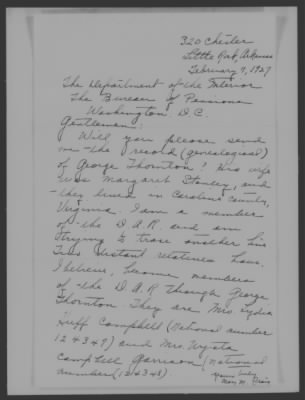 320 Chester
Little Rock, Arkansas
February 7, 1927
The Department of the Interior
The Bureau of Pensions
Washington, D.C.
Gentlemen:
Will you please send
me the record (genealogical)
of George Thornton? His wife
was Margaret Stanley, and
they lived in Caroline County,
Virginia. I am a member
of the D A R and am
trying to trace another line
Two distant relatives have,
I believe, become members
of the D A R through George
Thornton They are Mrs Lydia
Huff Campbell (National number
124349) and Mrs. Wyeta
Campbell Garrison (National
number (124348).
Yours truly
Mary M.